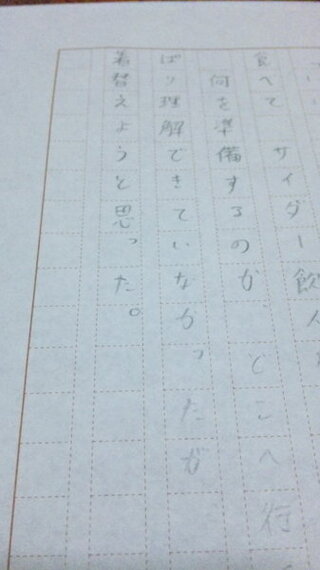 食べて　サイダー飲ん
何を準備するのか、どこへ行
ぱり理解できていなかったが
着替えようと思った。